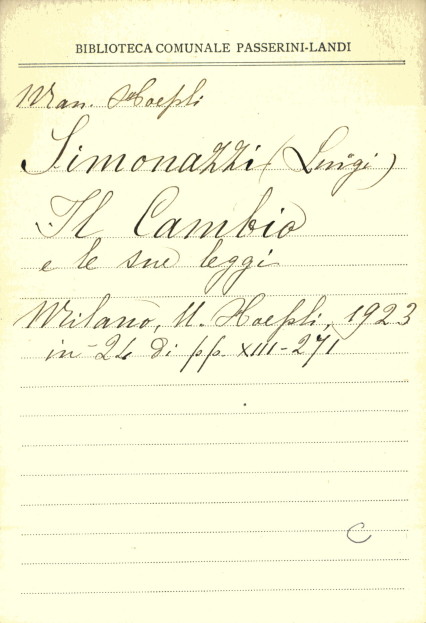 BIBLIOTECA COMUNALE PASSERINI-LANDI
Man. Hoepli
Simonazzi (Luigi)
Il Cambio
e le sue leggi
Milano, U. Hoepli, 1923
in-24 di pp. XIII-271
C